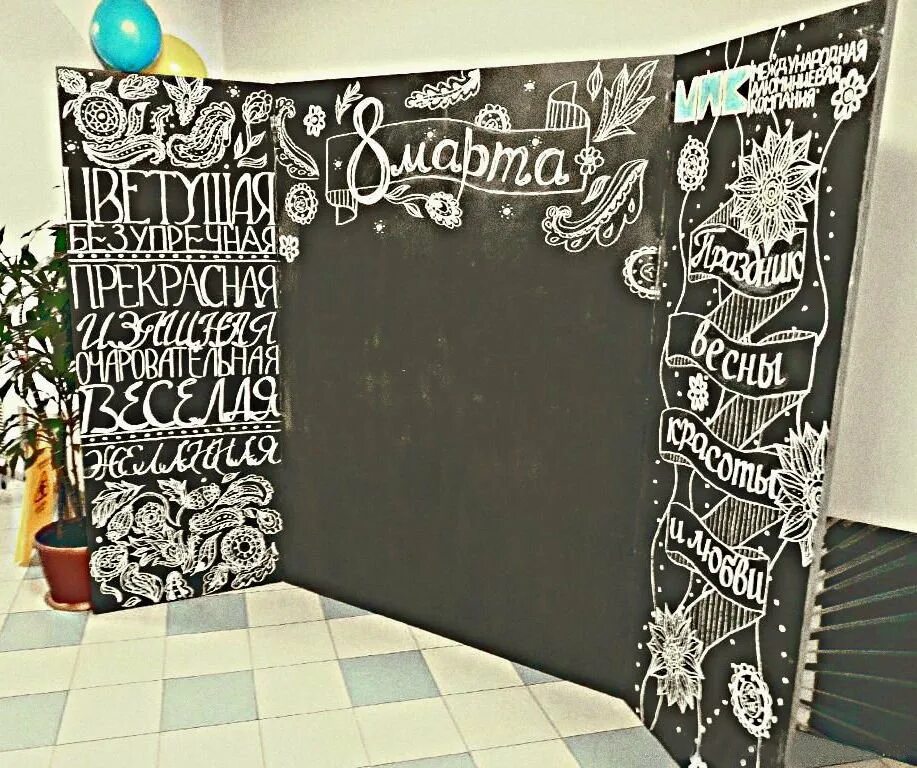 ЦВЕТУЩАЯ
БЕЗУПРЕЧНАЯ
ПРЕКРАСНАЯ
ИЗЯЩНАЯ
ОЧАРОВАТЕЛЬНАЯ
ВЕСЕЛАЯ
ЖЕЛАННАЯ
8 марта
МАК
МЕЖДУНАРОДНАЯ
АЛЮМИНИЕВАЯ
КОМПАНИЯ
Праздник
весны
красоты
и любви